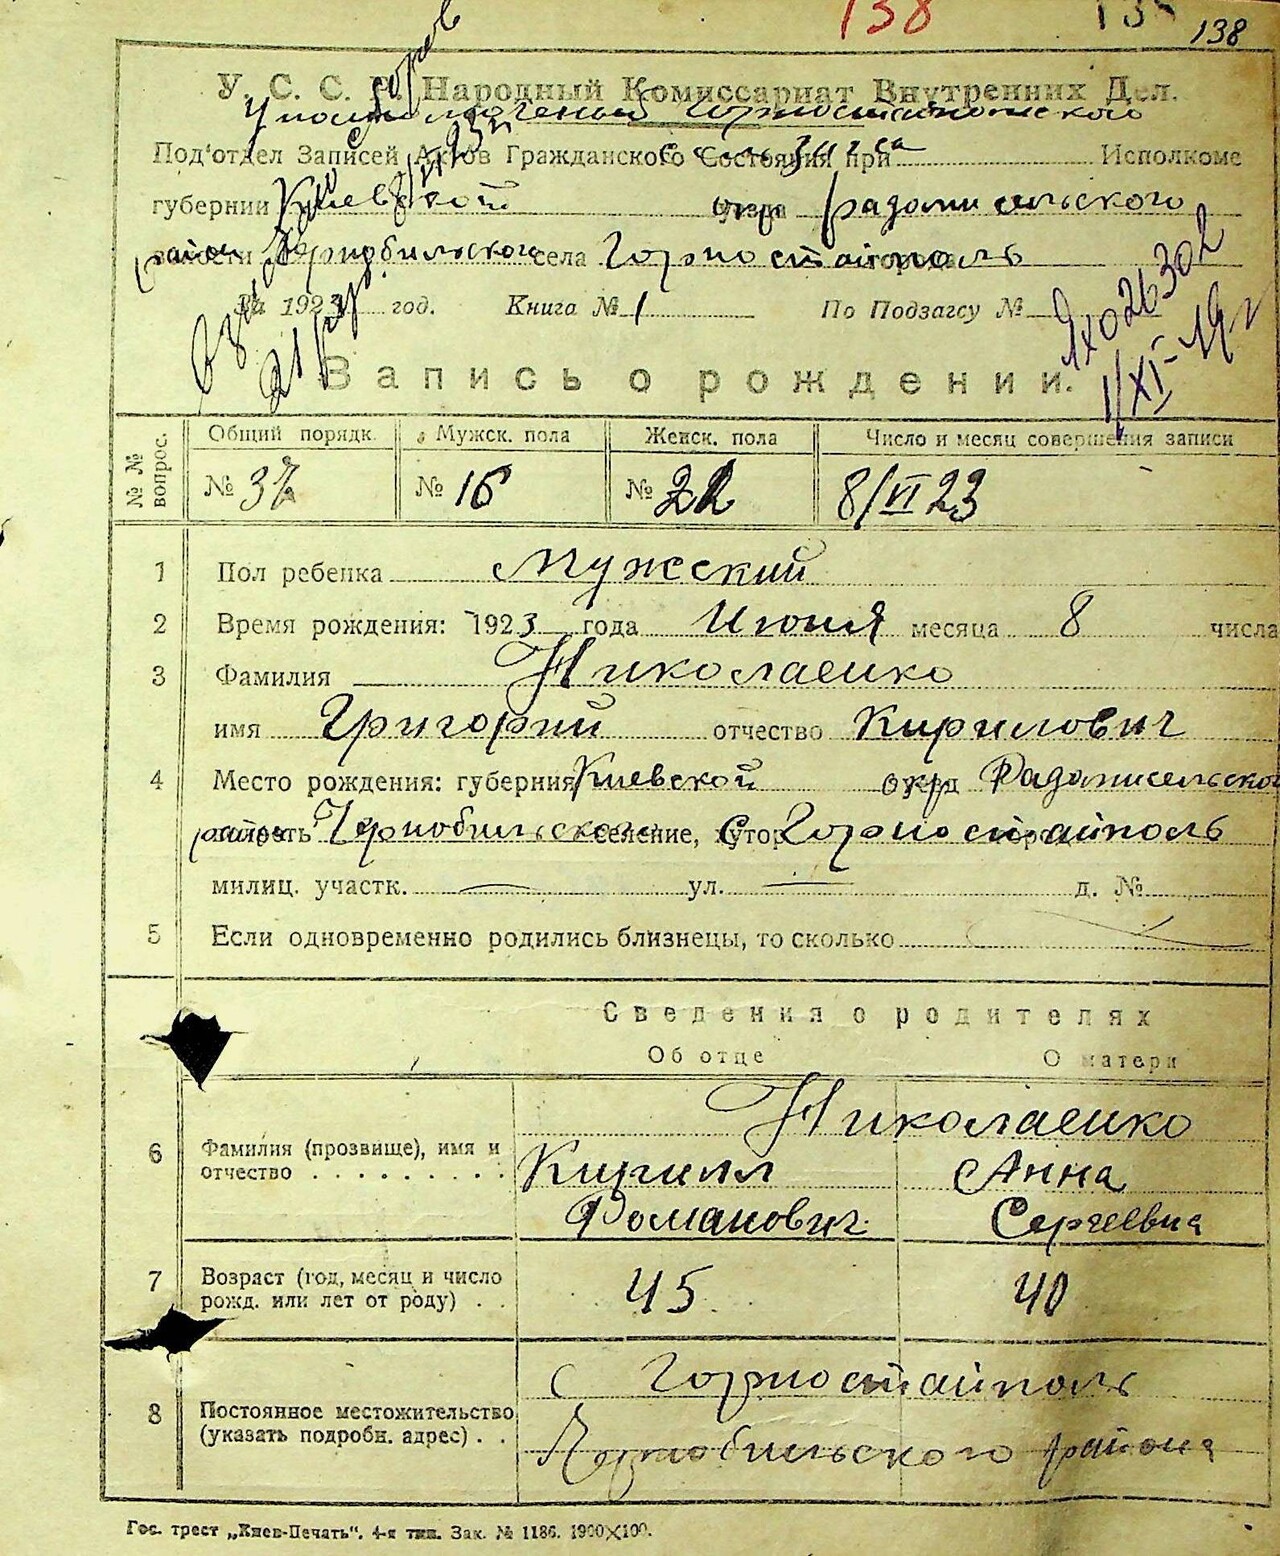 138
138
У. С. С. Р. Народный Комиссариат Внутренних Дел.
Горностайпольского
Под'отдел Записей Актов Гражданского Состояния при Исполкоме
губернии Киевской уезда окр Радомисельского
волости район Чернобильского села Горностайполь города
За 1923 год. Книга № 1 По Подзагсу №
Запись о рождении.
№№ вопрос. Общий порядк. Мужск. пола Женск. пола Число и месяц совершения записи
№ 37 № 16 № 22 8/VI 23
1 Пол ребенка Мужский
2 Время рождения: 1923 года Июня месяца 8 числа
3 Фамилия Николаенко
имя Григорий отчество Кирилович
4 Место рождения: губерния Киевской округ Радомисельской
район Чернобильского селение, хутор, С. Горностайполь
милиц. участк. — ул. — д. №
5 Если одновременно родились близнецы, то сколько
Сведения о родителях
Об отце О матери
Николаенко
6 Фамилия (прозвище), имя и отчество Кирилл Анна
Романович Сергеевна
7 Возраст (год, месяц и число рожд. или лет от роду) 45 40
С Горностайполь
8 Постоянное местожительство (указать подробн. адрес) Чернобильского района
Гос. трест „Киев-Печать“. 4-я тип. Зак. № 1186. 1900×100.